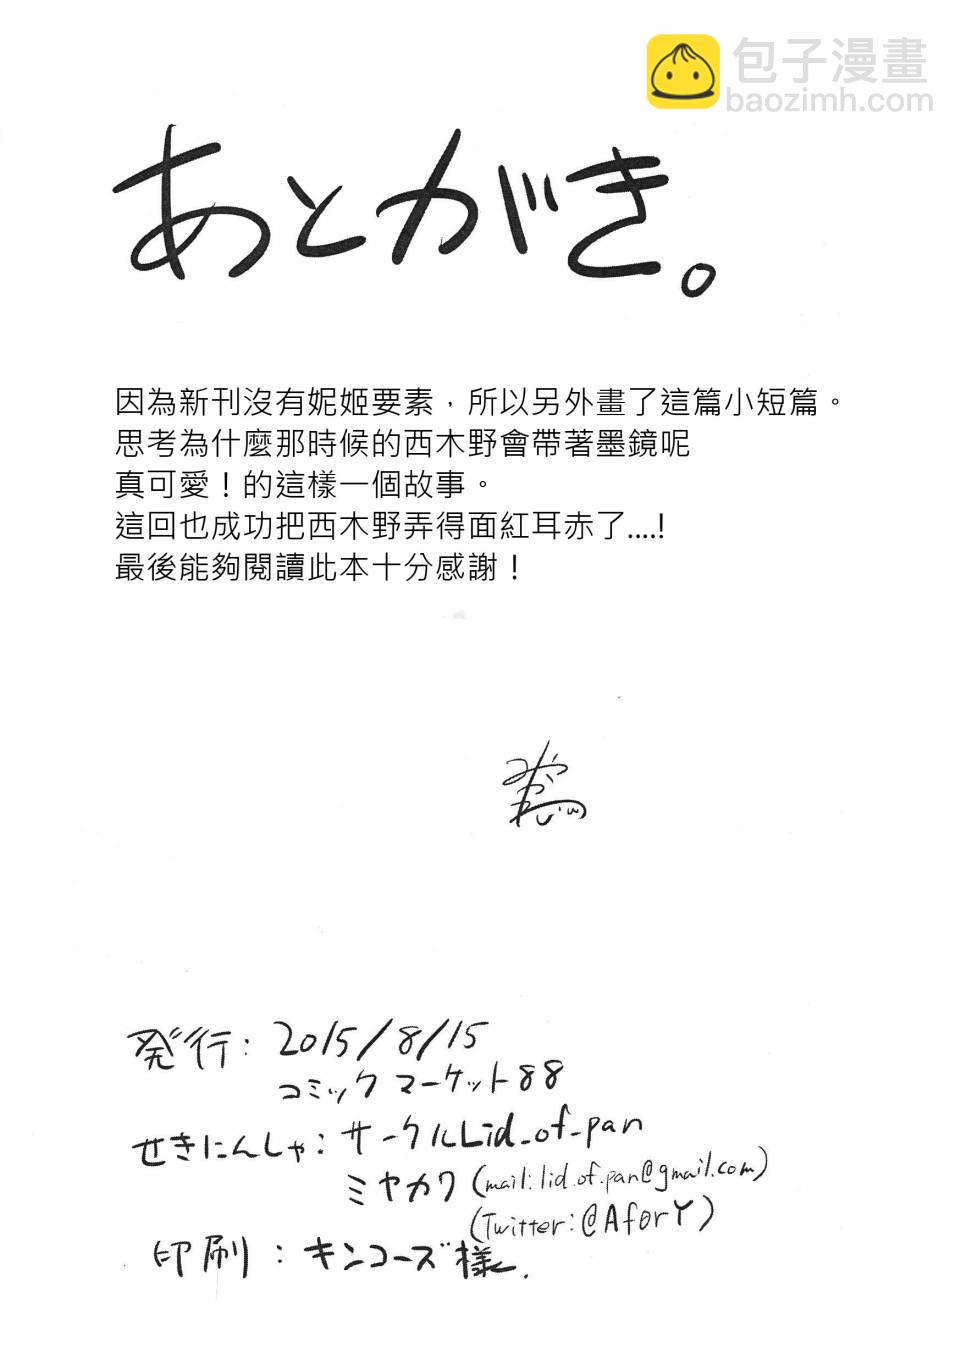 包子漫畫
baozimh.com
あとがき。
因為新刊沒有妮姬要素，所以另外畫了這篇小短篇。
思考為什麼那時候的西木野會帶著墨鏡呢
真可愛！的這樣一個故事。
這回也成功把西木野弄得面紅耳赤了....!
最後能夠閱讀此本十分感謝！
発行：2015/8/15
コミックマーケット88
せきにんしゃ：サークルLid_of_pan
ミヤカワ(mail:lid.of.pan@gmail.com)
(Twitter:@AforY)
印刷：キンコーズ様.